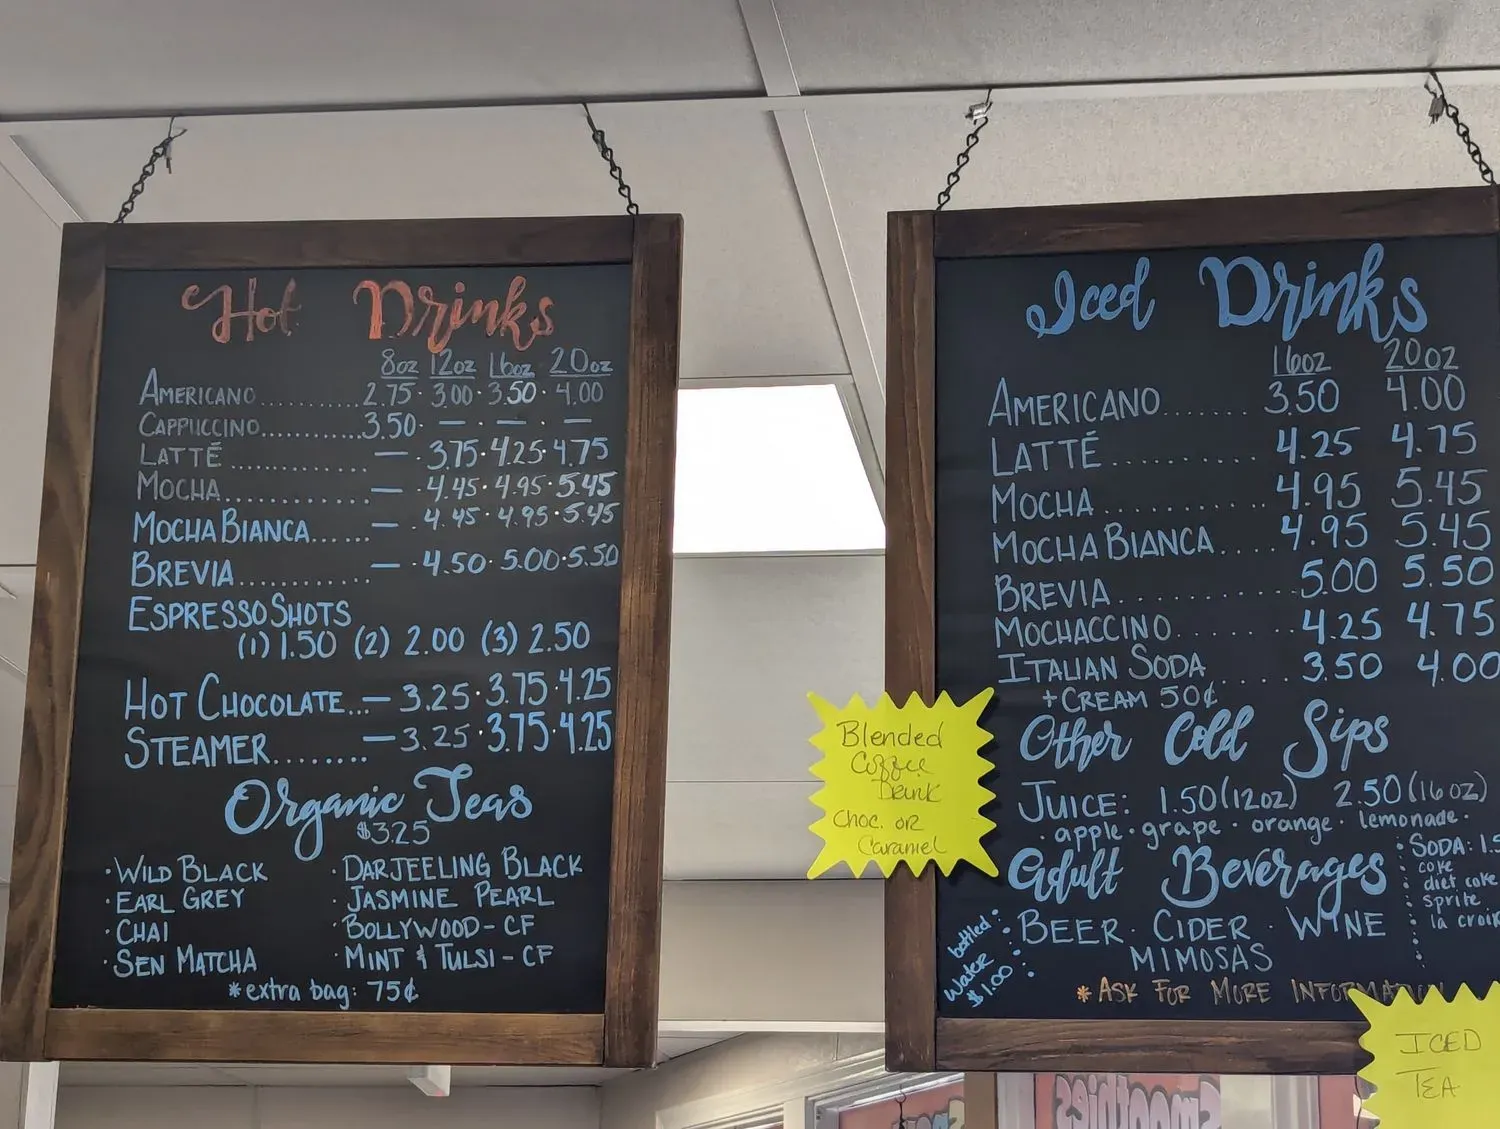 Hot Drinks
8oz 12oz 16oz 20oz
AMERICANO............2.75 · 3.00 · 3.50 · 4.00
CAPPUCCINO............3.50 · — · — · —
LATTÉ ................ — · 3.75 · 4.25 · 4.75
MOCHA................ — · 4.45 · 4.95 · 5.45
MOCHA BIANCA...... — · 4.45 · 4.95 · 5.45
BREVIA............... — · 4.50 · 5.00 · 5.50
ESPRESSO SHOTS
(1) 1.50 (2) 2.00 (3) 2.50
HOT CHOCOLATE...— 3.25 · 3.75 · 4.25
STEAMER........ — 3.25 · 3.75 · 4.25
Organic Teas
$3.25
· WILD BLACK
· EARL GREY
· CHAI
· SEN MATCHA
· DARJEELING BLACK
· JASMINE PEARL
· BOLLYWOOD - CF
· MINT & TULSI - CF
*extra bag: 75¢
Blended
Coffee
Drink
Choc. or
Caramel
Iced Drinks
16oz 20oz
AMERICANO....... 3.50 4.00
LATTÉ............. 4.25 4.75
MOCHA ............ 4.95 5.45
MOCHA BIANCA..... 4.95 5.45
BREVIA.............. 5.00 5.50
MOCHACCINO......... 4.25 4.75
ITALIAN SODA....... 3.50 4.00
+CREAM 50¢
Other Cold Sips
JUICE: 1.50 (12oz) 2.50 (16oz)
· apple · grape · orange · lemonade ·
SODA: 1.5
coke
diet coke
sprite
la croix
Adult Beverages
BEER · CIDER · WINE
MIMOSAS
bottled
Water
$1.00
*ASK FOR MORE INFORMATION
ICED
TEA
Smoothies